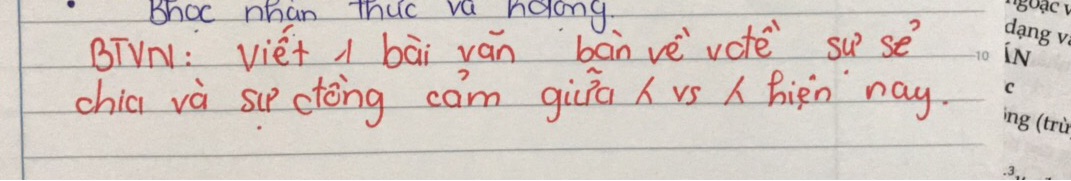 Bhọc nhận thức và hđộng.
BTVN: Viết 1 bài văn bàn về vđề sự sẻ
chia và sự đồng cảm giữa λ vs λ hiện nay.
ngoặc v
dạng và
10 ÍN
c
ing (trừ
.3